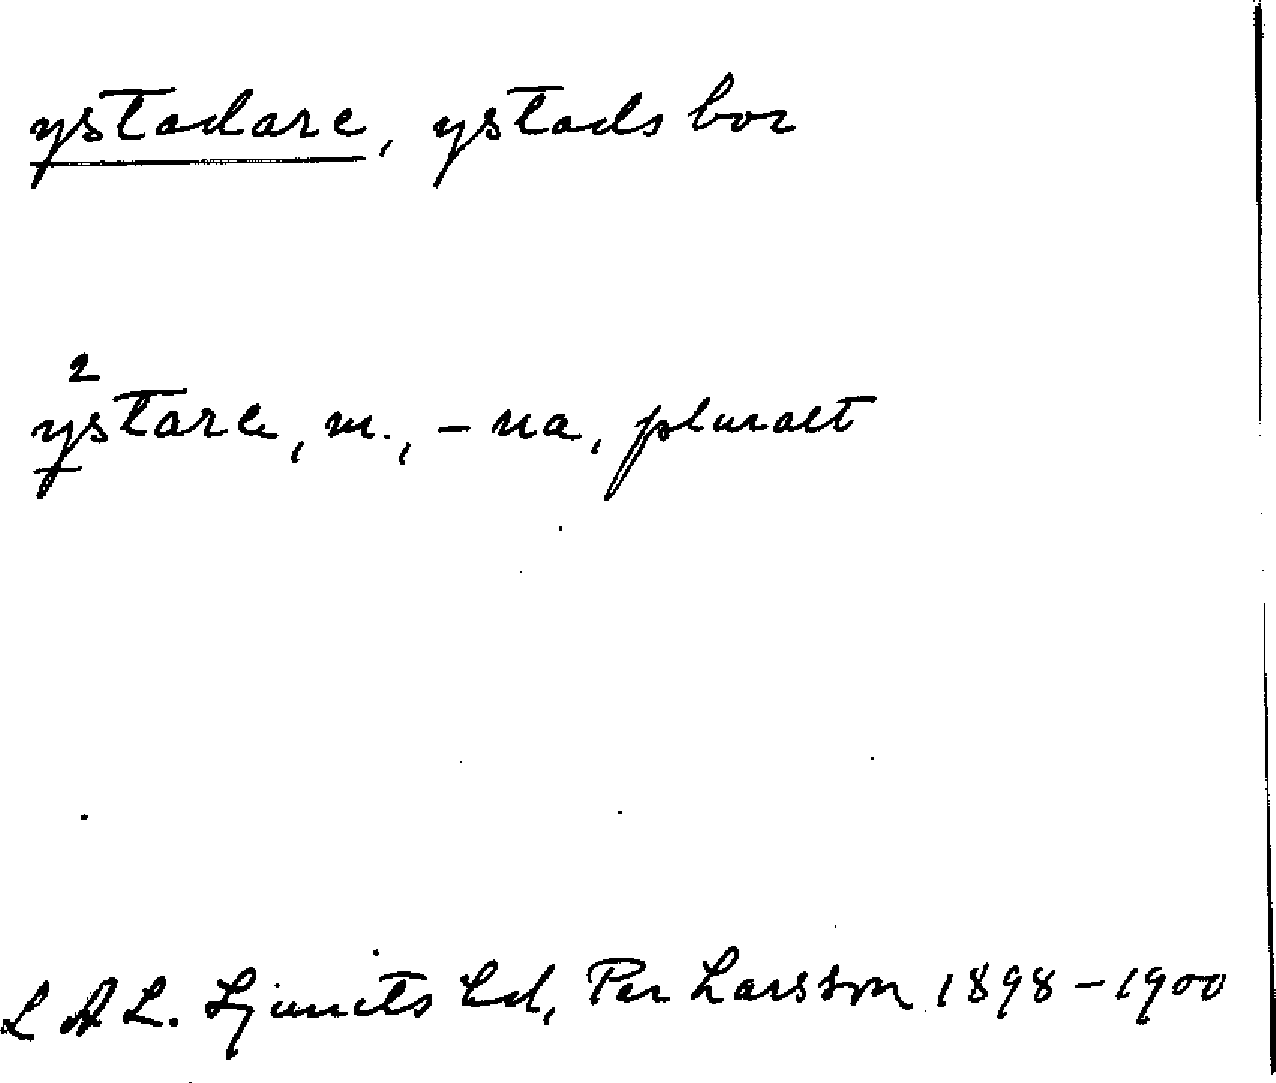 ystadare, ystadsbor
2
ystare, m., -na, pluralt
L A L. Ljunits hd, Per Larsson 1898-1900